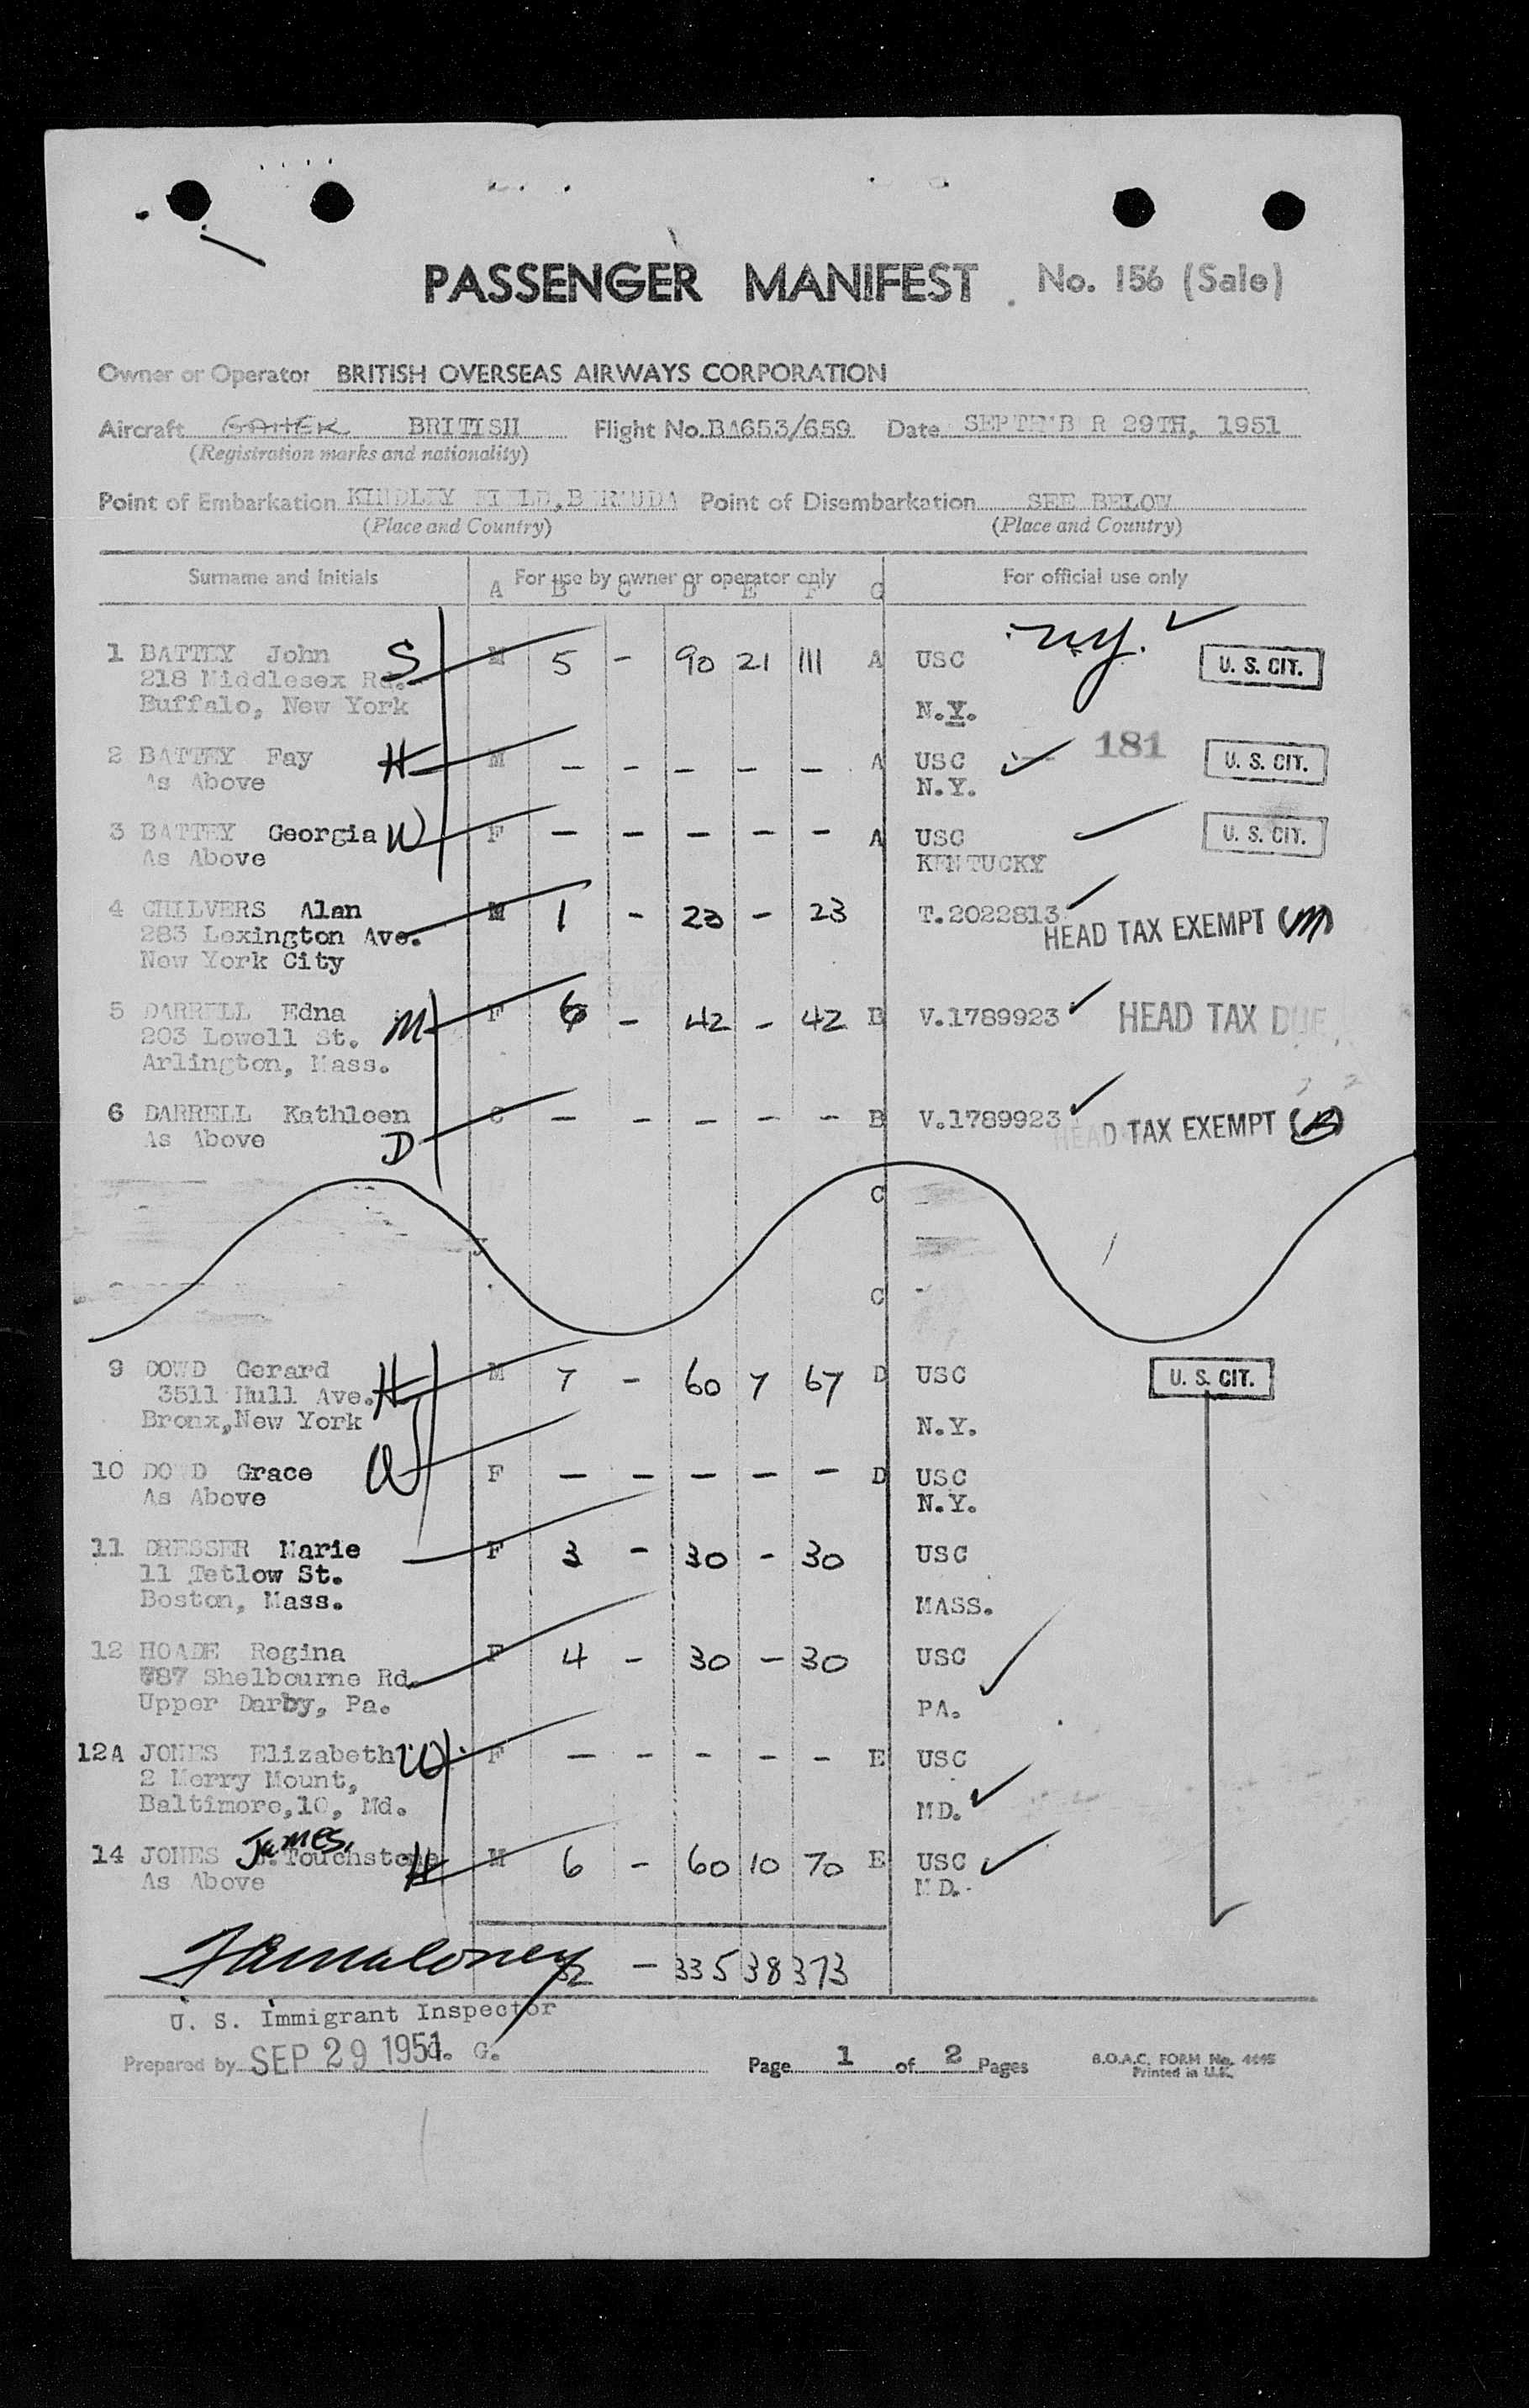 PASSENGER MANIFEST No. 156 (Sale)
Owner or Operator BRITISH OVERSEAS AIRWAYS CORPORATION
Aircraft GAHEK BRITISH Flight No. BA653/659 Date SEPTEMBER 29TH, 1951
(Registration marks and nationality)
Point of Embarkation KINDLEY FIELD, BERMUDA Point of Disembarkation SEE BELOW
(Place and Country) (Place and Country)
Surname and Initials For use by owner or operator only For official use only
A B C D E F G
1 BATTEY John S M 5 - 90 21 111 A USC N.Y. ✓ U. S. CIT.
218 Middlesex Rd.
Buffalo, New York N.Y.
2 BATTEY Fay H M - - - - - A USC ✓ 181 U. S. CIT.
As Above N.Y.
3 BATTEY Georgia W F - - - - - A USC ✓ U. S. CIT.
As Above KENTUCKY
4 CHILVERS Alan M 1 - 23 - 23 T.2022813 ✓
283 Lexington Ave. HEAD TAX EXEMPT (M)
New York City
5 DARRELL Edna M F 6 - 42 - 42 B V.1789923 ✓ HEAD TAX DUE
203 Lowell St.
Arlington, Mass.
6 DARRELL Kathleen D C - - - - - B V.1789923 ✓ HEAD TAX EXEMPT
As Above
C
C
9 DOWD Gerard H M 7 - 60 7 67 D USC U. S. CIT.
3511 Hull Ave.
Bronx, New York N.Y.
10 DOWD Grace W F - - - - - D USC
As Above N.Y.
11 DRESSER Marie F 3 - 30 - 30 USC
11 Tetlow St.
Boston, Mass. MASS.
12 HOADE Regina F 4 - 30 - 30 USC
787 Shelbourne Rd.
Upper Darby, Pa. PA. ✓
12A JONES Elizabeth W F - - - - - E USC
2 Merry Mount,
Baltimore,10, Md. MD. ✓
James,
14 JONES J.Touchstone H M 6 - 60 10 70 E USC ✓
As Above MD.
32 - 335 38 373
U. S. Immigrant Inspector
Prepared by SEP 29 1951 G. Page 1 of 2 Pages B.O.A.C. FORM No. 4445
Printed in U.K.